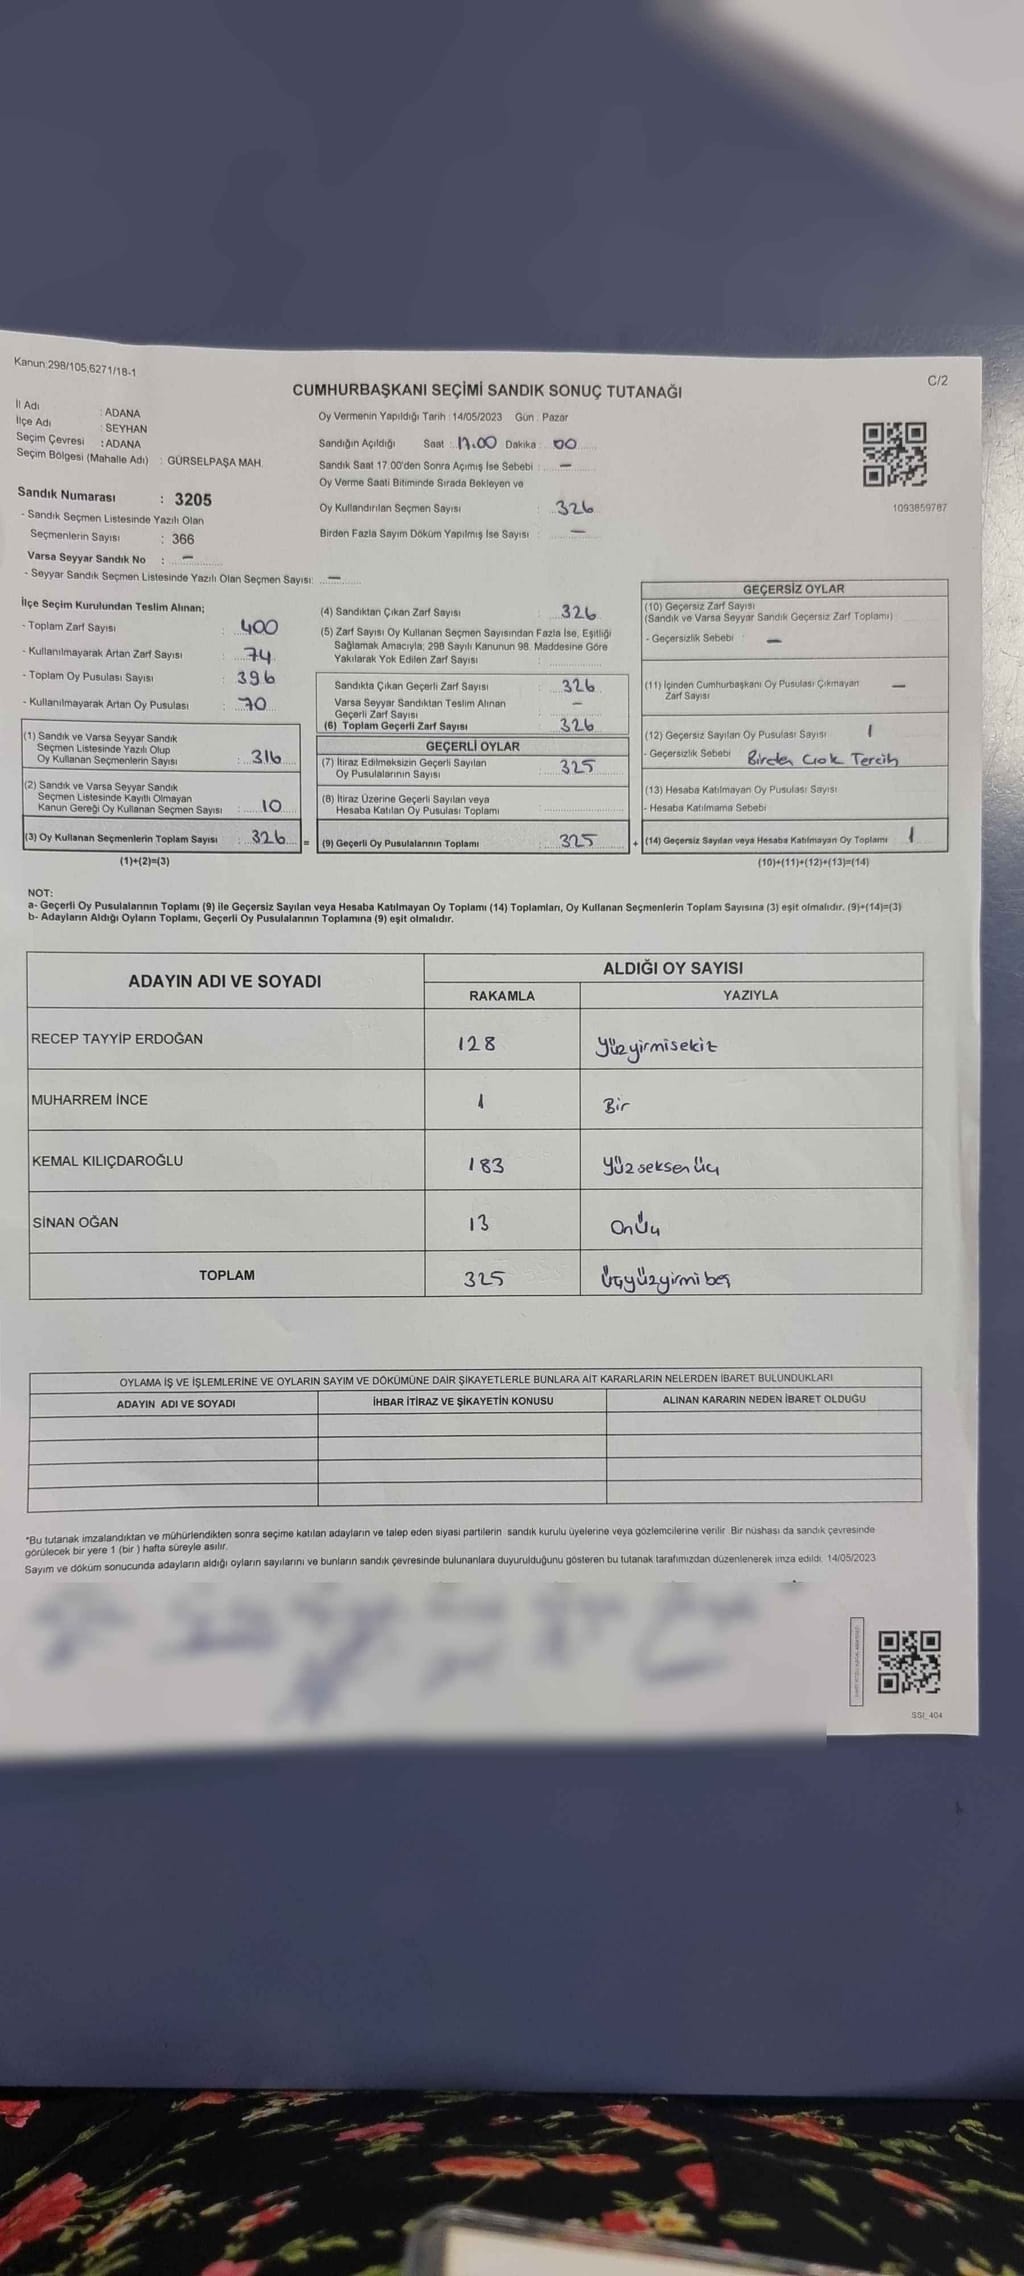 Kanun:298/105,6271/18-1
C/2
CUMHURBAŞKANI SEÇİMİ SANDIK SONUÇ TUTANAĞI
İl Adı : ADANA
İlçe Adı : SEYHAN
Seçim Çevresi : ADANA
Seçim Bölgesi (Mahalle Adı) : GÜRSELPAŞA MAH.
Sandık Numarası : 3205
- Sandık Seçmen Listesinde Yazılı Olan
Seçmenlerin Sayısı : 366
Varsa Seyyar Sandık No : —
- Seyyar Sandık Seçmen Listesinde Yazılı Olan Seçmen Sayısı: —
Oy Vermenin Yapıldığı Tarih : 14/05/2023 Gün : Pazar
Sandığın Açıldığı Saat : 17.00 Dakika : 00
Sandık Saat 17:00'den Sonra Açımış İse Sebebi : —
Oy Verme Saati Bitiminde Sırada Bekleyen ve
Oy Kullandırılan Seçmen Sayısı : 326
Birden Fazla Sayım Döküm Yapılmış İse Sayısı : —
1093859787
İlçe Seçim Kurulundan Teslim Alınan;
- Toplam Zarf Sayısı : 400
- Kullanılmayarak Artan Zarf Sayısı : 74
- Toplam Oy Pusulası Sayısı : 396
- Kullanılmayarak Artan Oy Pusulası : 70
(1) Sandık ve Varsa Seyyar Sandık
Seçmen Listesinde Yazılı Olup
Oy Kullanan Seçmenlerin Sayısı : 316
(2) Sandık ve Varsa Seyyar Sandık
Seçmen Listesinde Kayıtlı Olmayan
Kanun Gereği Oy Kullanan Seçmen Sayısı : 10
(3) Oy Kullanan Seçmenlerin Toplam Sayısı : 326 =
(1)+(2)=(3)
(4) Sandıktan Çıkan Zarf Sayısı : 326
(5) Zarf Sayısı Oy Kullanan Seçmen Sayısından Fazla İse, Eşitliği
Sağlamak Amacıyla; 298 Sayılı Kanunun 98. Maddesine Göre
Yakılarak Yok Edilen Zarf Sayısı :
Sandıkta Çıkan Geçerli Zarf Sayısı : 326
Varsa Seyyar Sandıktan Teslim Alınan
Geçerli Zarf Sayısı : —
(6) Toplam Geçerli Zarf Sayısı : 326
GEÇERLİ OYLAR
(7) İtiraz Edilmeksizin Geçerli Sayılan
Oy Pusulalarının Sayısı : 325
(8) İtiraz Üzerine Geçerli Sayılan veya
Hesaba Katılan Oy Pusulası Toplamı :
(9) Geçerli Oy Pusulalarının Toplamı : 325 +
GEÇERSİZ OYLAR
(10) Geçersiz Zarf Sayısı
(Sandık ve Varsa Seyyar Sandık Geçersiz Zarf Toplamı)
- Geçersizlik Sebebi : —
(11) İçinden Cumhurbaşkanı Oy Pusulası Çıkmayan —
Zarf Sayısı
(12) Geçersiz Sayılan Oy Pusulası Sayısı 1
- Geçersizlik Sebebi Birden Çok Tercih
(13) Hesaba Katılmayan Oy Pusulası Sayısı
- Hesaba Katılmama Sebebi
(14) Geçersiz Sayılan veya Hesaba Katılmayan Oy Toplamı 1
(10)+(11)+(12)+(13)=(14)
NOT:
a- Geçerli Oy Pusulalarının Toplamı (9) ile Geçersiz Sayılan veya Hesaba Katılmayan Oy Toplamı (14) Toplamları, Oy Kullanan Seçmenlerin Toplam Sayısına (3) eşit olmalıdır. (9)+(14)=(3)
b- Adayların Aldığı Oyların Toplamı, Geçerli Oy Pusulalarının Toplamına (9) eşit olmalıdır.
ADAYIN ADI VE SOYADI ALDIĞI OY SAYISI
RAKAMLA YAZIYLA
RECEP TAYYİP ERDOĞAN 128 Yüzyirmisekiz
MUHARREM İNCE 1 Bir
KEMAL KILIÇDAROĞLU 183 Yüzseksenüç
SİNAN OĞAN 13 Onüç
TOPLAM 325 Üçyüzyirmibeş
OYLAMA İŞ VE İŞLEMLERİNE VE OYLARIN SAYIM VE DÖKÜMÜNE DAİR ŞİKAYETLERLE BUNLARA AİT KARARLARIN NELERDEN İBARET BULUNDUKLARI
ADAYIN ADI VE SOYADI İHBAR İTİRAZ VE ŞİKAYETİN KONUSU ALINAN KARARIN NEDEN İBARET OLDUĞU
*Bu tutanak imzalandıktan ve mühürlendikten sonra seçime katılan adayların ve talep eden siyasi partilerin sandık kurulu üyelerine veya gözlemcilerine verilir. Bir nüshası da sandık çevresinde
görülecek bir yere 1 (bir ) hafta süreyle asılır.
Sayım ve döküm sonucunda adayların aldığı oyların sayılarını ve bunların sandık çevresinde bulunanlara duyurulduğunu gösteren bu tutanak tarafımızdan düzenlenerek imza edildi. 14/05/2023
SSI_404